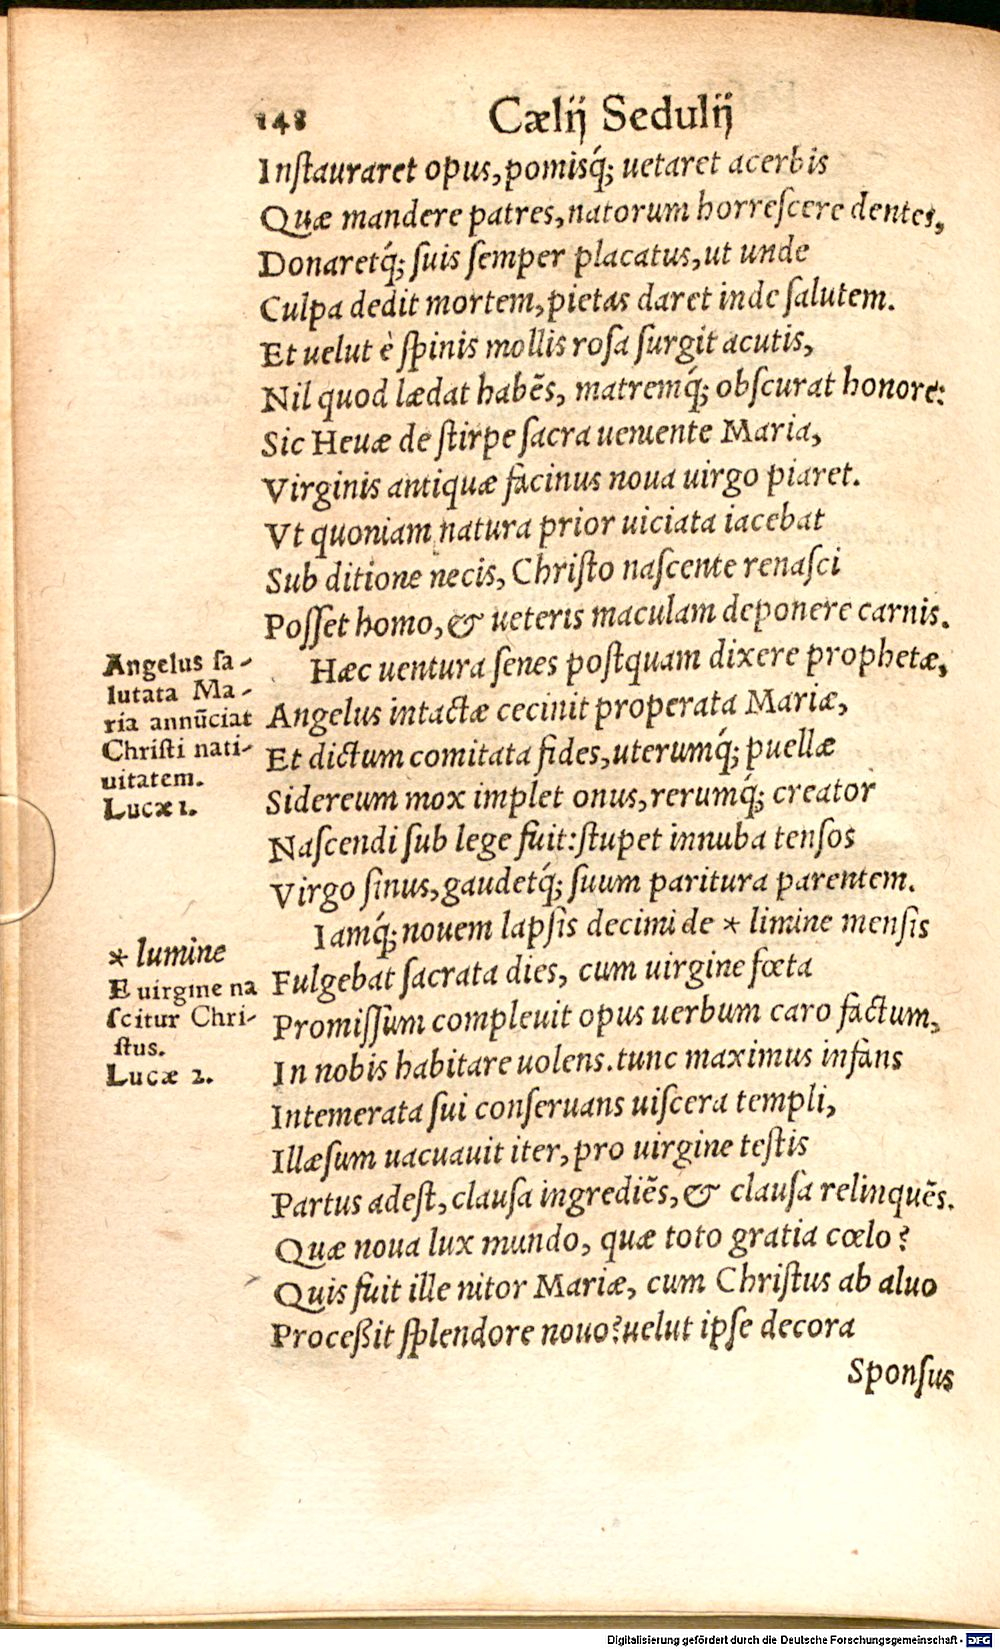 148 Cælij Sedulij
Instauraret opus, pomisq́; uetaret acerbis
Quæ mandere patres, natorum horrescere dentes,
Donaretq́; suis semper placatus, ut unde
Culpa dedit mortem, pietas daret inde salutem.
Et uelut è spinis mollis rosa surgit acutis,
Nil quod lædat habẽs, matremq́; obscurat honore:
Sic Heuæ de stirpe sacra ueniente Maria,
Virginis antiquæ facinus noua uirgo piaret.
Vt quoniam natura prior uiciata iacebat
Sub ditione necis, Christo nascente renasci
Posset homo, & ueteris maculam deponere carnis.
Hæc uentura senes postquam dixere prophetæ,
Angelus intactæ cecinit properata Mariæ,
Et dictum comitata fides, uterumq́; puellæ
Sidereum mox implet onus, rerumq́; creator
Nascendi sub lege fuit: stupet innuba tensos
Virgo sinus, gaudetq́; suum paritura parentem.
Angelus sa-
lutata Ma-
ria annũciat
Christi nati-
uitatem.
Lucæ 1.
Iamq́; nouem lapsis decimi de * limine mensis
Fulgebat sacrata dies, cum uirgine fœta
Promissum compleuit opus uerbum caro factum,
In nobis habitare uolens. tunc maximus infans
Intemerata sui conseruans uiscera templi,
Illæsum uacuauit iter, pro uirgine testis
Partus adest, clausa ingrediẽs, & clausa relinquẽs.
Quæ noua lux mundo, quæ toto gratia cœlo?
Quis fuit ille nitor Mariæ, cum Christus ab aluo
Proceßit splendore nouo? uelut ipse decora
* lumine
E uirgine na
scitur Chri-
stus.
Lucæ 2.
Sponsus
Digitalisierung gefördert durch die Deutsche Forschungsgemeinschaft - DFG